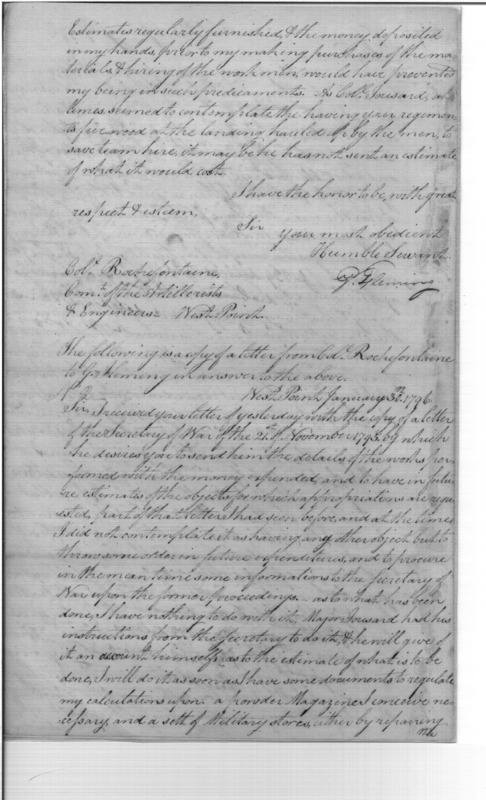 Estimates regularly furnished, & the money deposited
in my hands, prior to my making purchases of the ma-
terials & hiring of the workmen, would have prevented
my being in such predicaments. As Colo. Tousard, at
times seemed to contemplate the having your regimen-
ts fire wood at the landing hauled up by the men, to
save team hire, it may be he has not sent an estimate
of what it would cost.
I have the honor to be, with great
respect & esteem,
Sir your most obedient
Humble Servant
G. Fleming
Colo. Rochefontaine
Comt. of the Artillerists
& Engineers West Point.
The following is a copy of a letter from Col. Rochefontaine
to G. Fleming in answer to the above.
West Point January 1796
Sir, I received your letter of yesterday with the copy of a letter
of the Secretary of War of the 21st. of November 1795 by which
he desires you to send him the details of the works per-
formed with the money expended, and to have in futu-
re estimates of the objects for which appropriations are requ-
ested, part of that letter I had seen before, and at the time
I did not contemplate it as having any other object but to
throw some order in future expenditures, and to procure
in the mean time some informations to the Secretary of
War upon the former proceedings. as to what has been
done, I have nothing to do with it, Major Tousard had his
instructions from the Secretary to do it, & he will give of
it an account himself, as to the estimate of what is to be
done, I will do it as soon as I have some documents to regulate
my calculations upon. a powder Magazine I conceive ne-
cessary, and a sett of Military stores, either by repairing
the